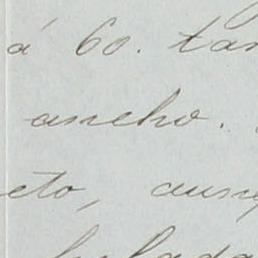 á 60. tan
ancho.
eto, aunq